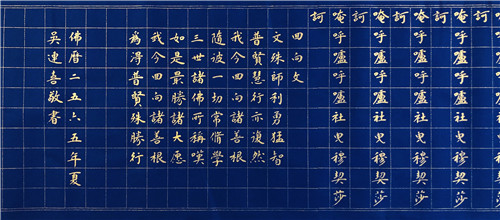 訶
唵呼嚧社曳穆契莎
訶
唵呼嚧社曳穆契莎
訶
唵呼嚧社曳穆契莎
訶
唵呼嚧社曳穆契莎
訶
回向文
文殊師利勇猛智
普賢慧行亦復然
我今回向諸善根
隨彼一切常脩學
三世諸佛所稱嘆
如是最勝諸大愿
我今回向諸善根
為得普賢殊勝行
佛曆二五六五年夏
吳連喜敬書